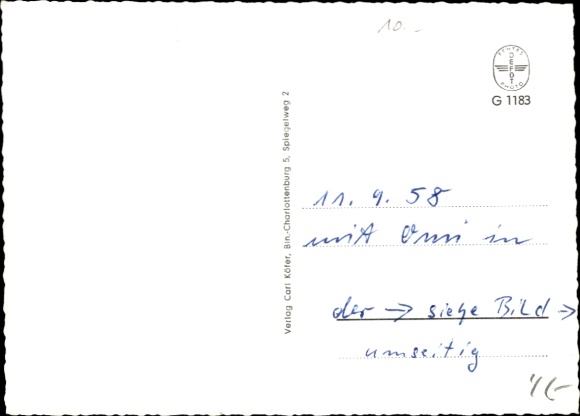 10.-
ECHTES
DEFOT
PHOTO
G 1183
Verlag Carl Köfer, Bln.-Charlottenburg 5, Spiegelweg 2
11. 9. 58
mit Omi in
der → siehe Bild →
umseitig